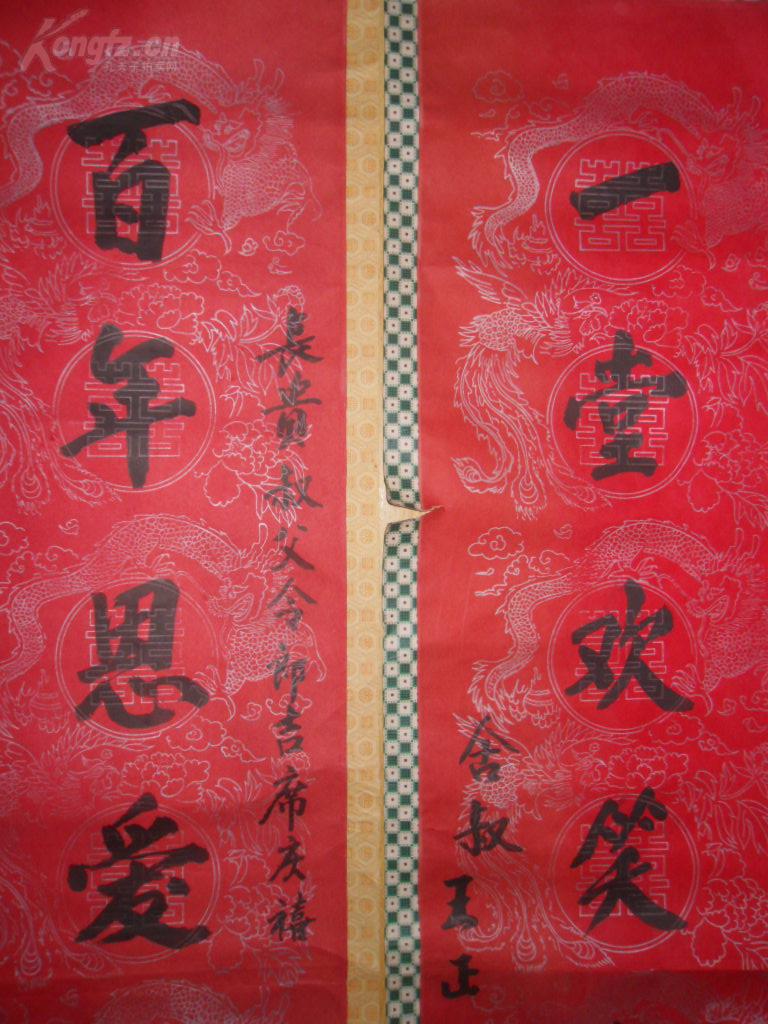 Kongfz.cn
孔夫子拍卖网
百年恩爱
長貴叔父令郎吉席庆禧
一堂欢笑
舍叔王正